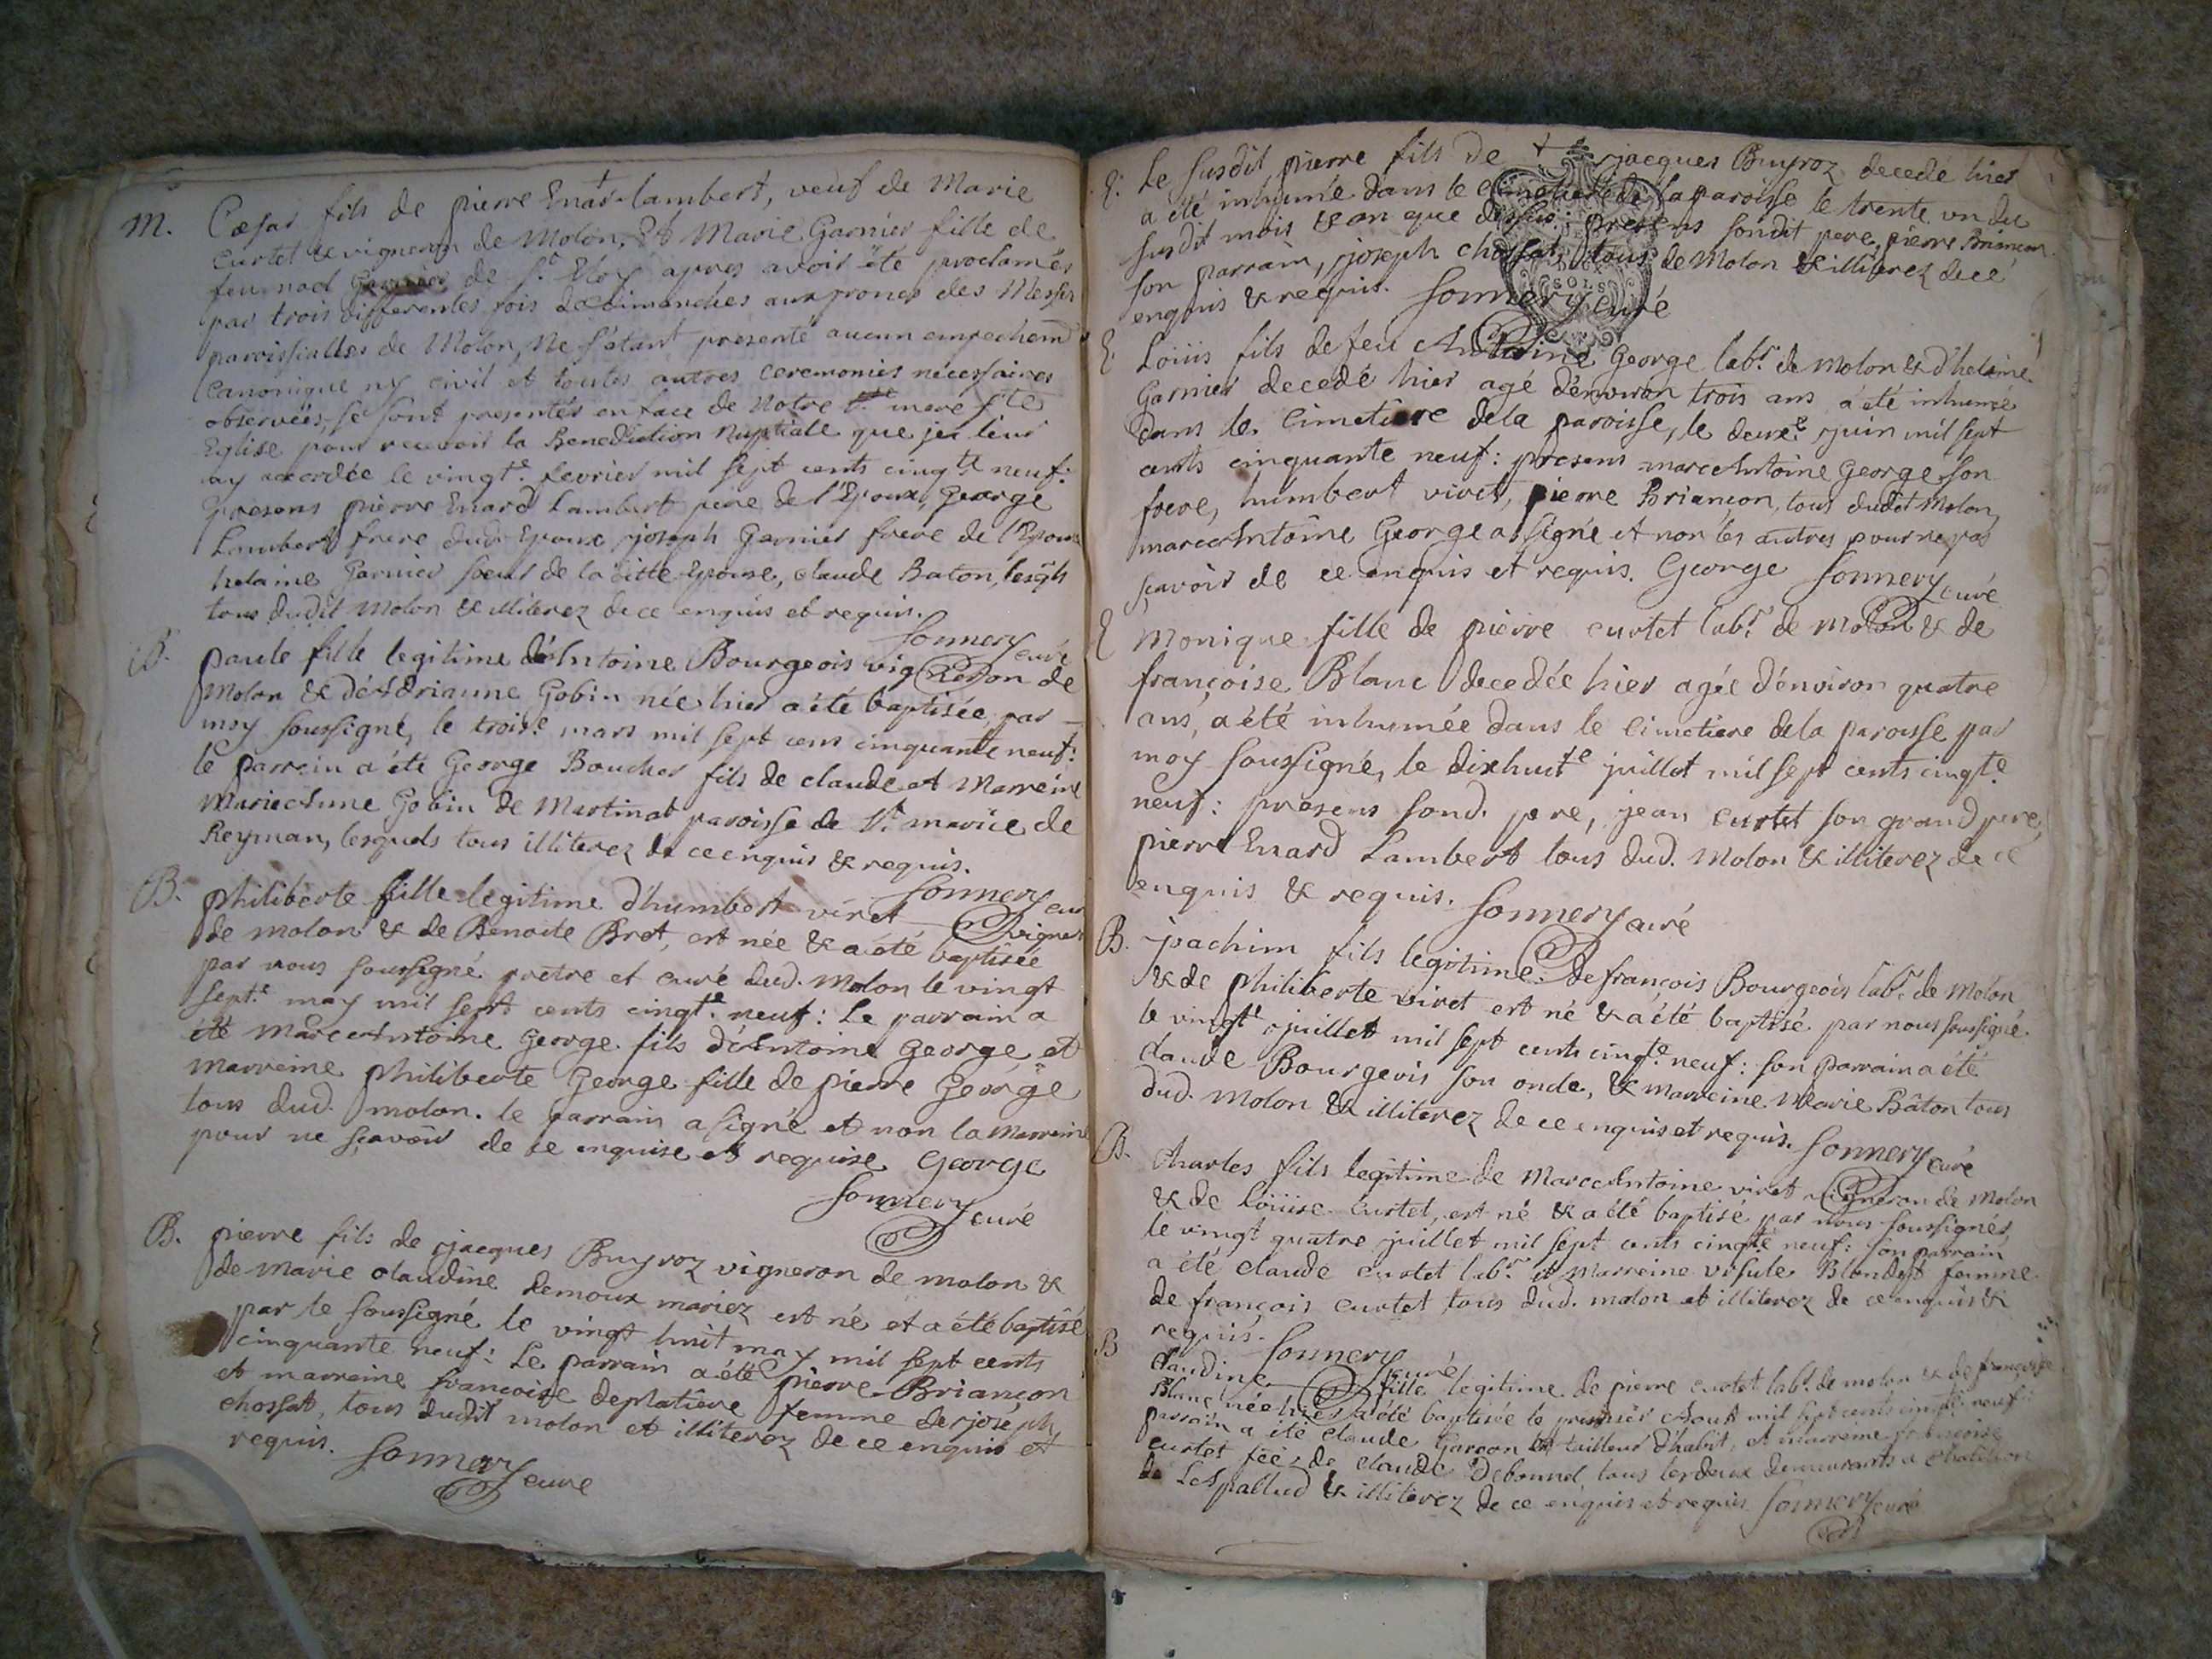 M. Cæsar fils de pierre Enard-lambert, veuf de Marie
Curtet & vigneron de Molon, Et Marie Garnier fille de
feu noel Garnier de St Eloy apres avoir été proclamés
par trois differentes fois de dimanches aux prones des Messes
paroissialles de Molon, Ne s'étant presenté aucun empechem
Canonique ny civil et toutes autres ceremonies nécessaires
observées, se sont presentés en face de Notre mere ste
Eglise pour recevoir la Benediction Nuptiale que je leur
ay accordée le vingte fevrier mil sept cents cinqte neuf:
presens pierre Enard Lambert pere de l'Epoux, George
Lambert frere dud. Epoux joseph Garnier frere de l'Epouse
helaine Garnier soeur de la ditte Epouse, claude Baton,
tous dudit Molon & illiterez de ce enquis et requis.
Sonnery curé
B. paule fille legitime d'Antoine Bourgeois vigneron de
Molon & d'Adrianne Gobin née hier a été baptisée par
moy soussigné, le troise mars mil sept cens cinquante neuf:
le parrein a été George Boucher fils de claude et Marreine
Marie Anne Gobin de Martinat paroisse de St. maurice de
Reyman, lesquels tous illiterez de ce enquis & requis.
Sonnery curé
B. philiberte fille legitime d'humbert viret vigner
de molon & de Benoite Bret, est née & a été baptisée
par nous soussigné pretre et curé dud. Molon le vingt
septe may mil sept cents cinqte neuf: Le parrain a
été Marc Antoine George fils d'Antoine George, et
marreine philiberte George fille de pierre George
tous dud. molon. le parrain a signé et non la Marreine
pour ne sçavoir de ce enquise et requise George
Sonnery curé
B. pierre fils de jacques Buyroz vigneron de molon &
de Marie claudine demoux mariez est né et a été baptisé
par le soussigné le vingt huit may mil sept cents
cinquante neuf: Le parrain a été pierre Briançon
et marreine françoise deplatière femme de joseph
chossat, tous dudit molon et illiterez de ce enquis et
requis. Sonnery curé
E. Le susdit pierre fils de jacques Buyroz decedé hier
a été inhumé dans le cimetiere de la paroisse le trente un du
susdit mois & an que dessus: presens sondit pere, pierre Briançon
son parrain, joseph chossat, tous de Molon & illiterez de ce
enquis & requis. Sonnery curé
SOLS
E Loüis fils de feu Antoine George labr. de Molon & d'helaine
Garnier decedé hier agé d'environ trois ans a été inhumé
dans le cimetiere de la paroisse, le deuxe juin mil sept
cents cinquante neuf: presens marc Antoine George son
frere, humbert viret, pierre Briançon, tous dudit Molon,
marc Antoine George a signé et non les autres pour ne pas
sçavoir de ce enquis et requis. George Sonnery curé
E Monique fille de pierre curtet labr. de Molon & de
françoise Blanc decedée hier agée d'environ quatre
ans, a été inhumée dans le cimetiere de la paroisse par
moy soussigné, le dixhuite juillet mil sept cents cinqte
neuf: presens sond. pere, jean curtet son grand pere,
pierre Enard Lambert tous dud. Molon & illiterez de ce
enquis & requis. Sonnery curé
B. joachim fils legitime de françois Bourgeois labr. de Molon
& de philiberte viret est né & a été baptisé par nous soussigné
le vingte juillet mil sept cents cinqte neuf: son parrain a été
claude Bourgeois son oncle, & marreine Marie Bâton tous
dud. Molon & illiterez de ce enquis et requis. Sonnery curé
B. Charles fils legitime de Marc Antoine viret vigneron de Molon
& de Loüise curtet, est né & a été baptisé par nous soussignés,
le vingt quatre juillet mil sept cents cinqte neuf: son parrain
a été claude curtet labr. et Marreine vrsule Blondet femme
de françois curtet tous dud. molon et illiterez de ce enquis &
requis. Sonnery curé
B claudine fille legitime de pierre curtet labr. de molon & de françoise
Blanc née hier a été baptisée le premier Aout mil sept cents cinqte neuf
parrain a été claude Garçon tailleur d'habit, et marreine
curtet fée. de claude Debonnel tous les deux demeurants a Chatillon
de Lespallud & illiterez de ce enquis et requis Sonnery curé